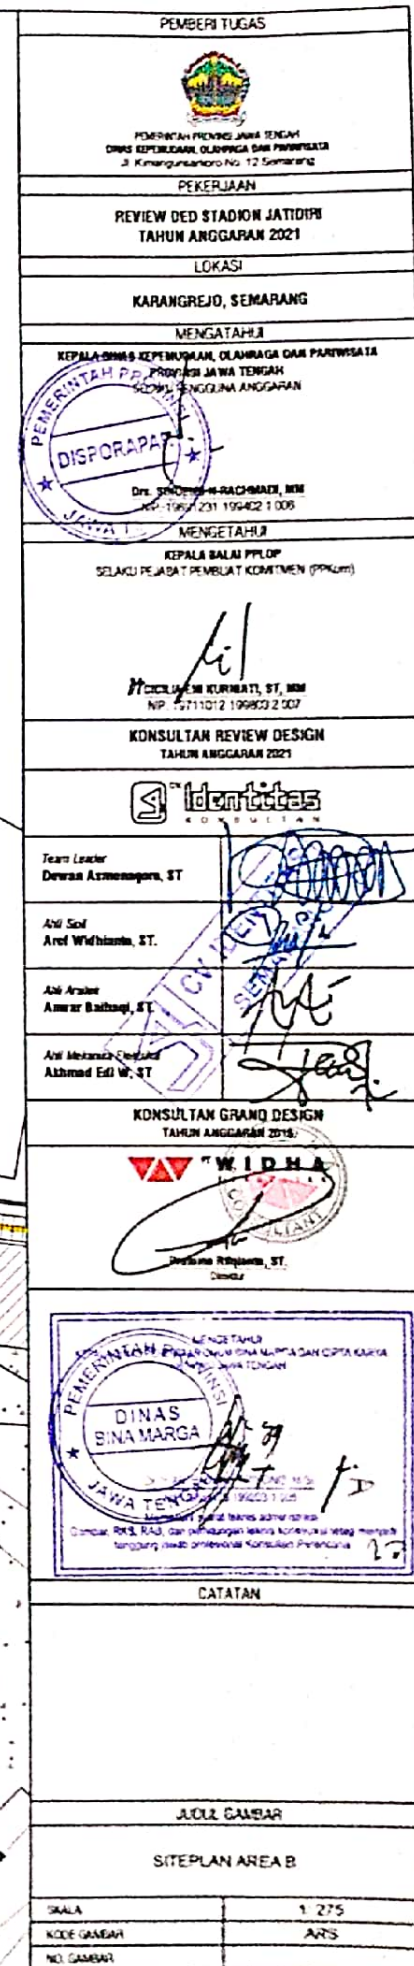 PEMBERI TUGAS
PEMERINTAH PROVINSI JAWA TENGAH
DINAS KEPEMUDAAN, OLAHRAGA DAN PARIWISATA
Jl. Kimangunsarkoro No. 12 Semarang
PEKERJAAN
REVIEW DED STADION JATIDIRI
TAHUN ANGGARAN 2021
LOKASI
KARANGREJO, SEMARANG
MENGATAHUI
KEPALA DINAS KEPEMUDAAN, OLAHRAGA DAN PARIWISATA
PROVINSI JAWA TENGAH
SELAKU PENGGUNA ANGGARAN
PEMERINTAH PROVINSI
DISPORAPAR
JAWA
Drs. RACHMADI, MM
231 199402 1 006
MENGETAHUI
KEPALA BALAI PPLOP
SELAKU PEJABAT PEMBUAT KOMITMEN (PPKom)
KURNIATI, ST, MM
NIP. 19711012 199803 2 007
KONSULTAN REVIEW DESIGN
TAHUN ANGGARAN 2021
CV Identitas
KONSULTAN
Team Leader
Dewan Azmenagara, ST
Ahli Sipil
Aref Widhianto, ST.
Ahli Arsitek
Anwar Baihaqi, ST
Ahli Mekanika Elektrikal
Akhmad Edi W, ST
CV IDEN
SEMARANG
KONSULTAN GRAND DESIGN
TAHUN ANGGARAN
PT WIDHA
ST.
Direktur
MENGETAHUI
UMUM BINA MARGA DAN CIPTA KARYA
JAWA TENGAH
PEMERINTAH PROVINSI
DINAS
BINA MARGA
JAWA TENGAH
teknis administrasi
Gambar, RKS, RAB, dan perhitungan teknis konstruksi tetap menjadi
tanggung jawab profesional Konsultan Perencana
CATATAN
JUDUL GAMBAR
SITEPLAN AREA B
SKALA 1: 275
KODE GAMBAR ARS
NO. GAMBAR